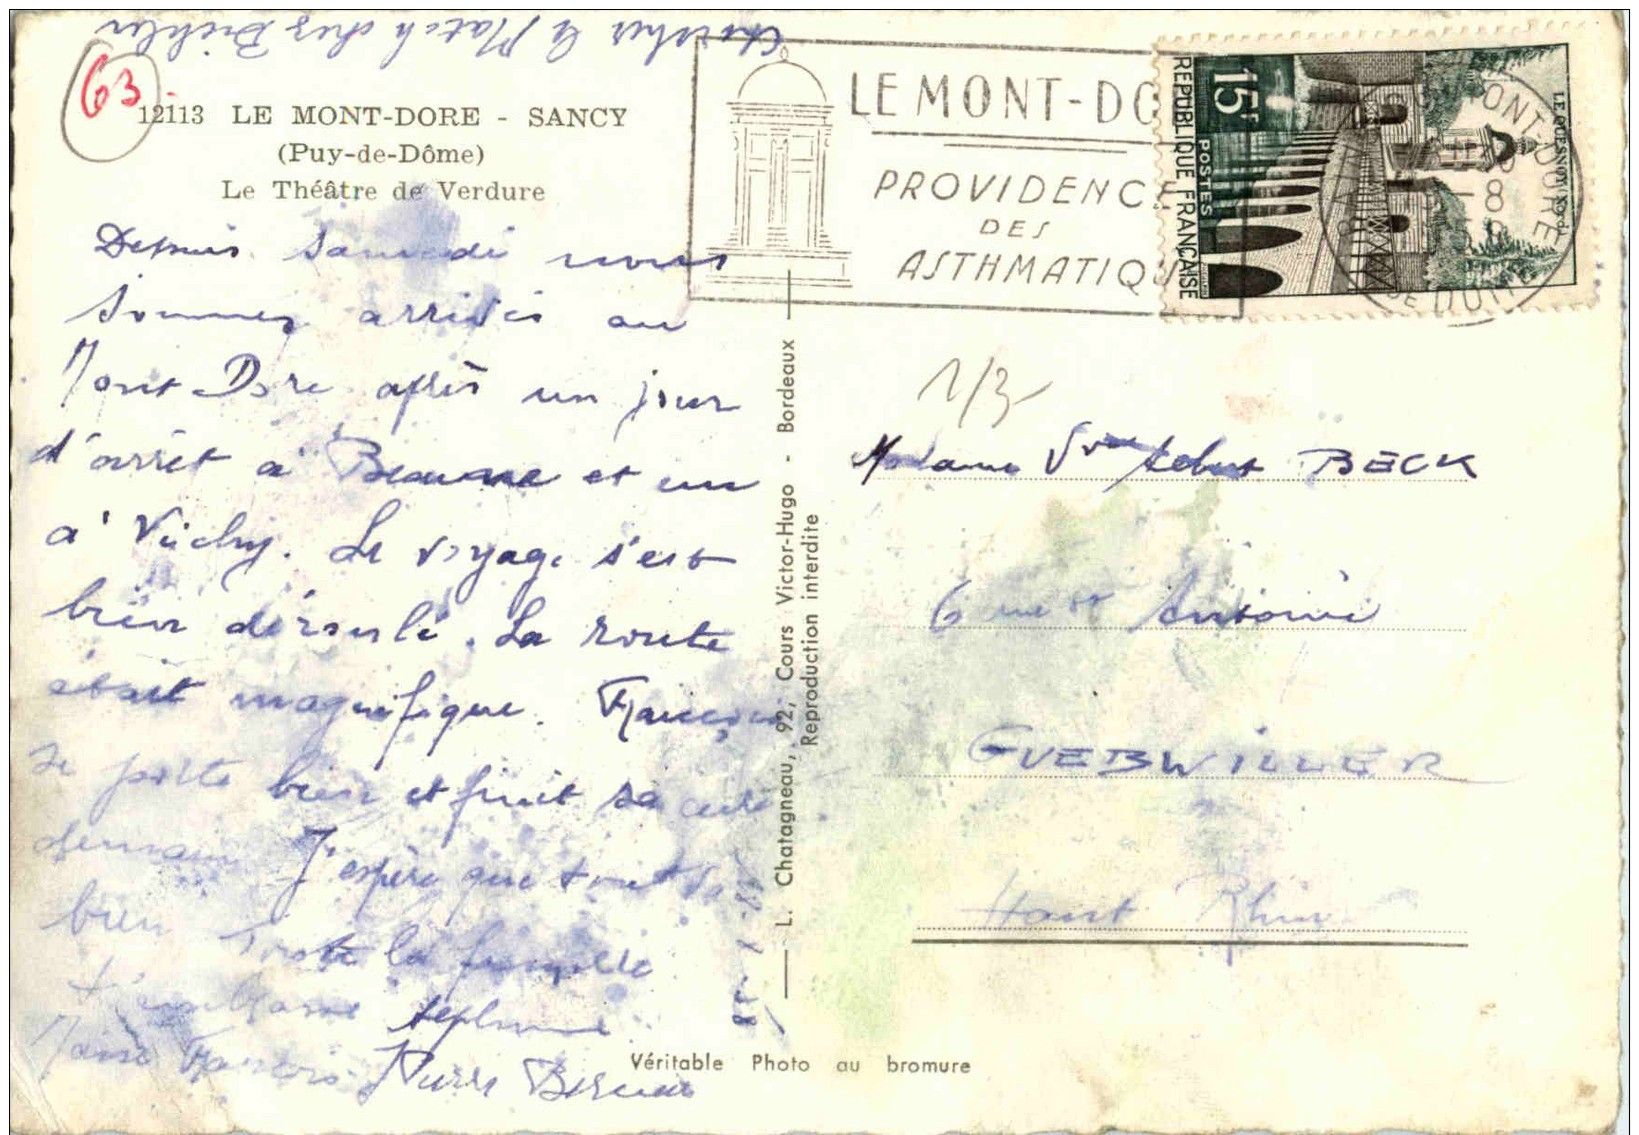 Chercher le Match chez Bichler
63
12113 LE MONT-DORE - SANCY
(Puy-de-Dôme)
Le Théâtre de Verdure
Depuis samedi nous
sommes arrivés au
Mont Dore après un jour
d'arrêt à Beaune et un
à Vichy. Le voyage s'est
bien déroulé. La route
était magnifique. François
se porte bien et finit sa cure
demain J'espère que tout va
bien Toute la famille
t'embrasse
François Pierre Bernard
L. Chatagneau, 92, Cours Victor-Hugo - Bordeaux
Reproduction interdite
Véritable Photo au bromure
LE MONT-DO
PROVIDENCE
DES
ASTHMATIQU
15F
POSTES
REPUBLIQUE FRANÇAISE
LE QUESNOY (Nord)
MONT-DORE
PUY DE DOME
1/3
Madame Vve BECK
6 rue St Antoine
GUEBWILLER
Haut Rhin